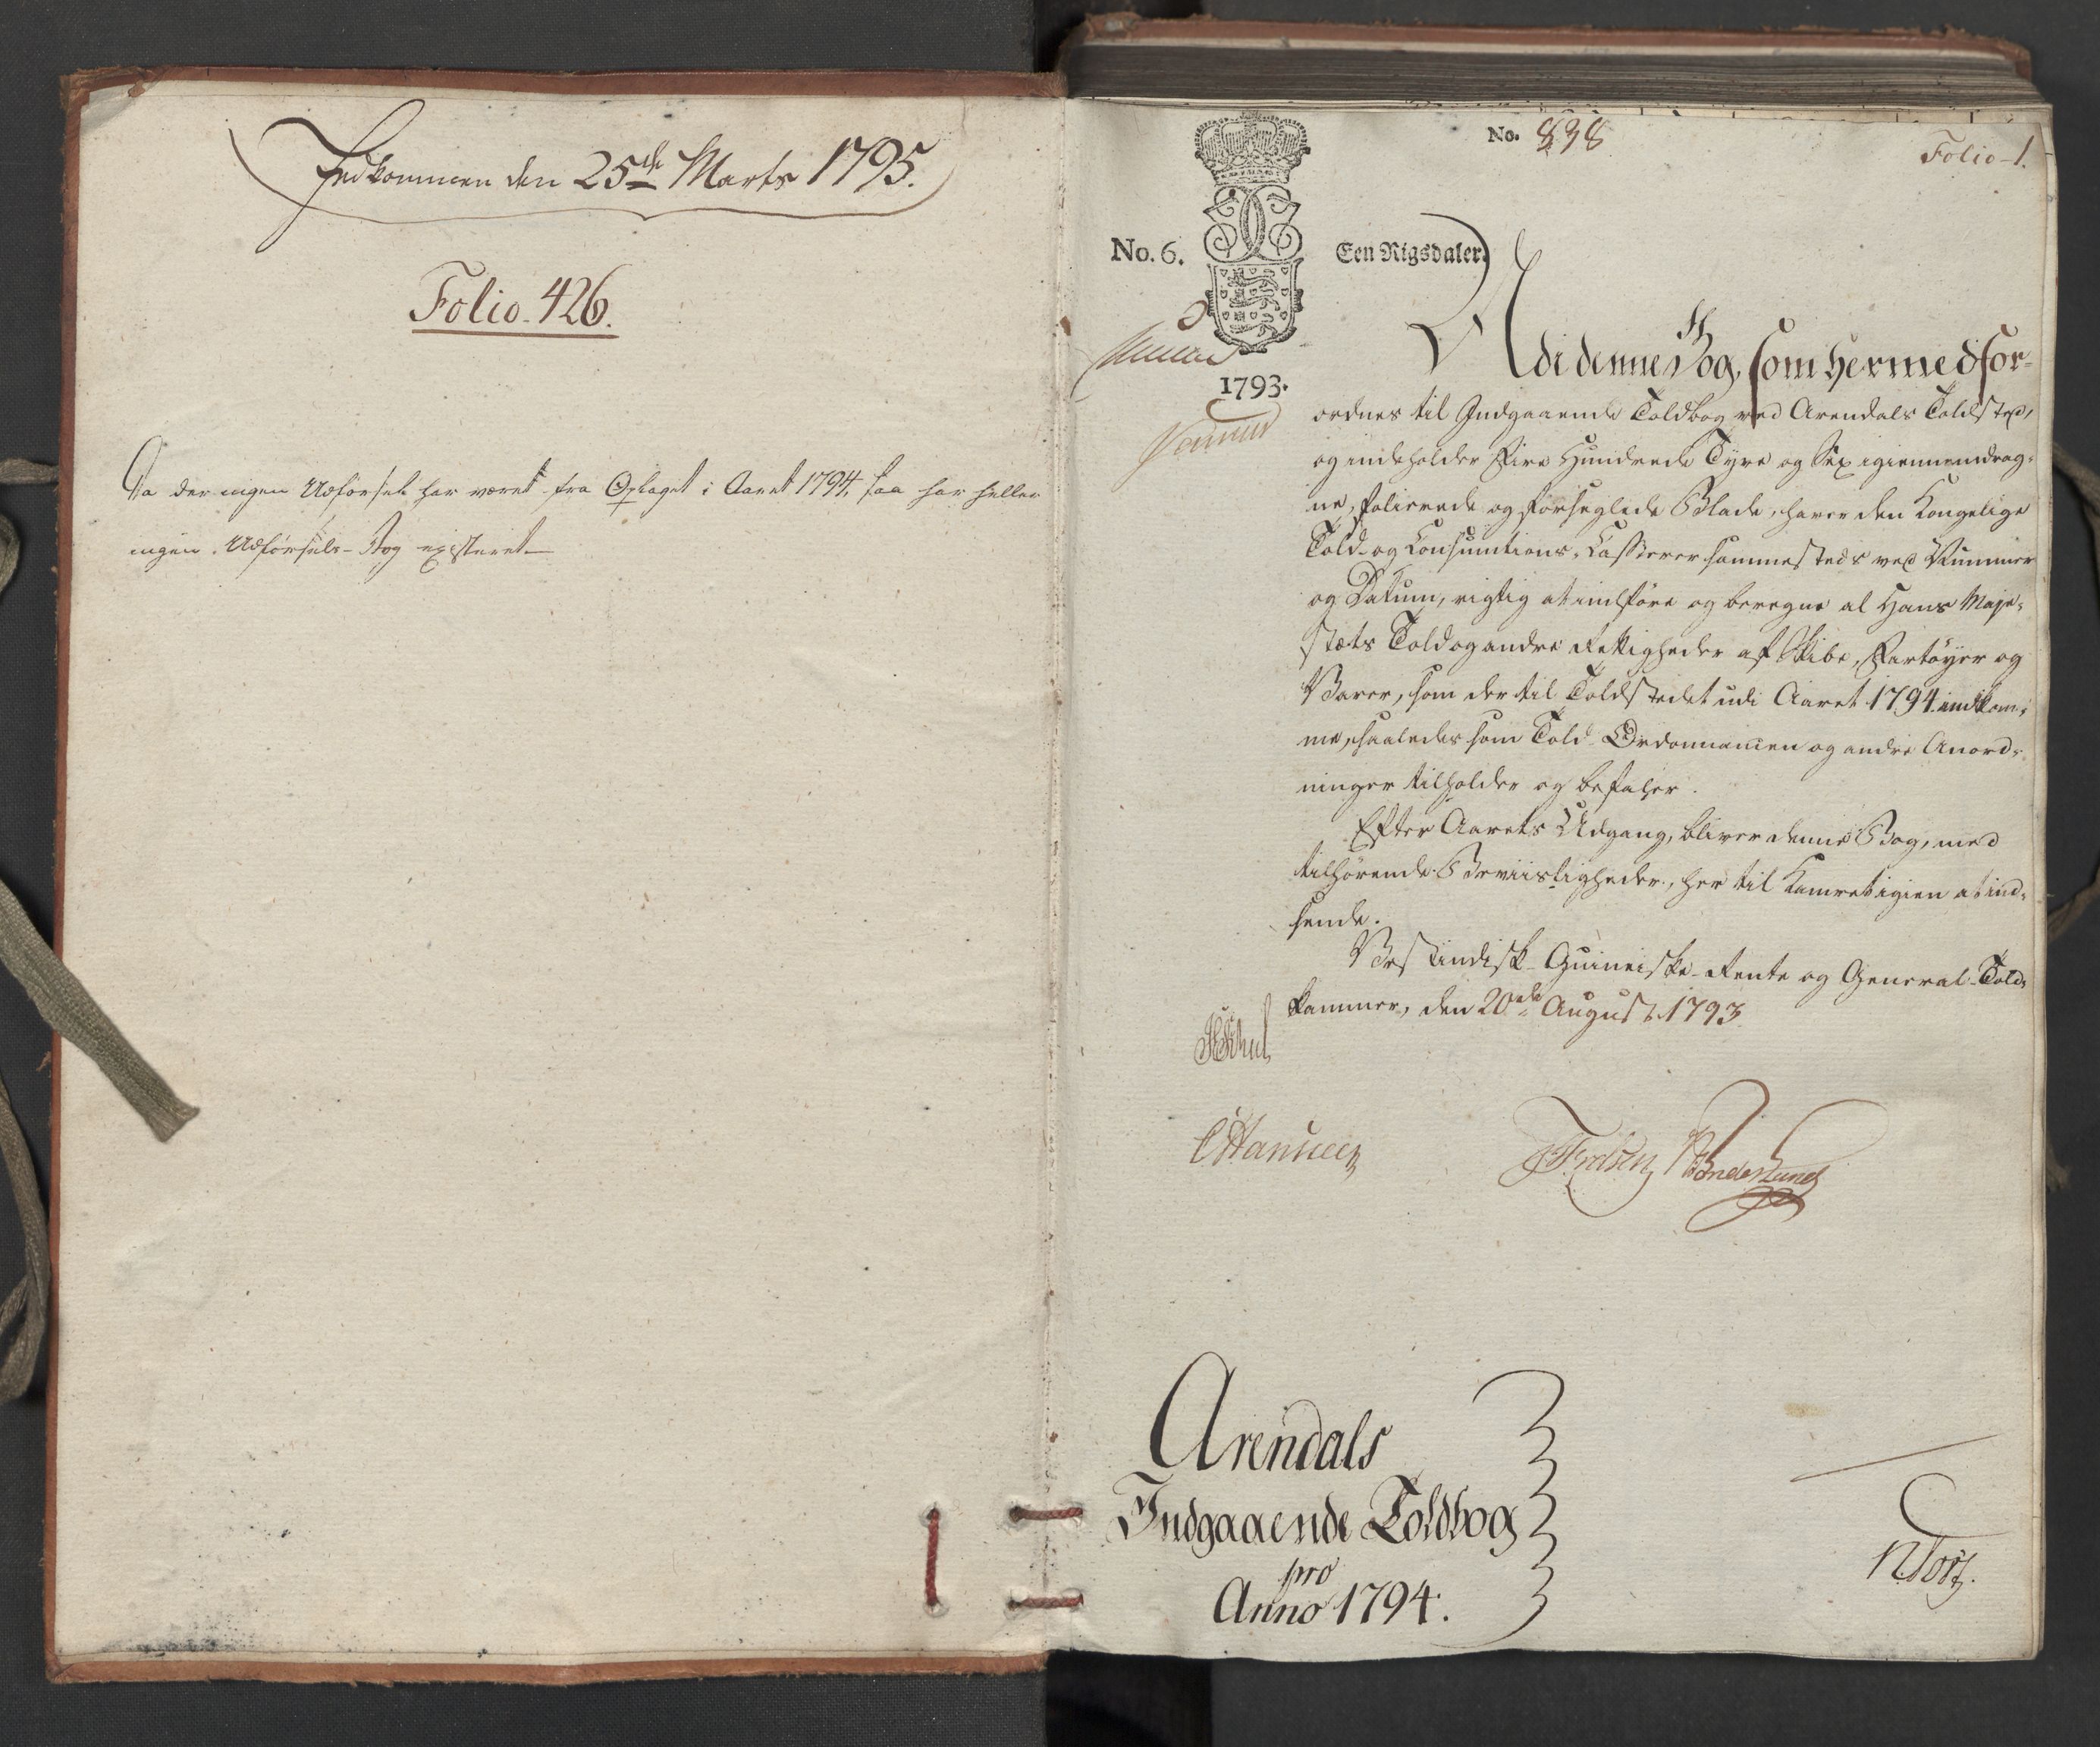 Indkommen den 25de Marts 1795.
Folio. 426.
Da der ingen Udførsel har været fra Oplaget i Aaret 1794, saa har heller
ingen Udførsels-Bog existeret
No. 838
Folio-1.
No. 6.
Een Rigsdaler.
1793.
Udi denne Bog, som hermed for-
ordnes til Indgaaende Toldbog ved Arendals Toldsted,
og indeholder Fire Hundrede Tyve og Sex igiennemdrag-
ne, folierede og forseglede Blade, haver den Kongelige
Told- og Consumtions-Casserer sammesteds ved Nummer
og Datum, rigtig at indføre og beregne al Hans Maje-
stæts Told og andre Rettigheder af Skibe, Fartøyer og
Varer, som der til Toldstedet udi Aaret 1794 indkom-
me, saaledes som Told-Ordonnancen og andre Anord-
ninger tilholder og befaler.
Efter Aarets Udgang, bliver denne Bog, med
tilhørende Beviisligheder, her til Kamret igien at ind-
sende.
Vestindisk-Guineiske Rente og General-Told-
kammer, den 20de August 1793
Arendals
Indgaaende Toldbog
pro
Anno 1794.